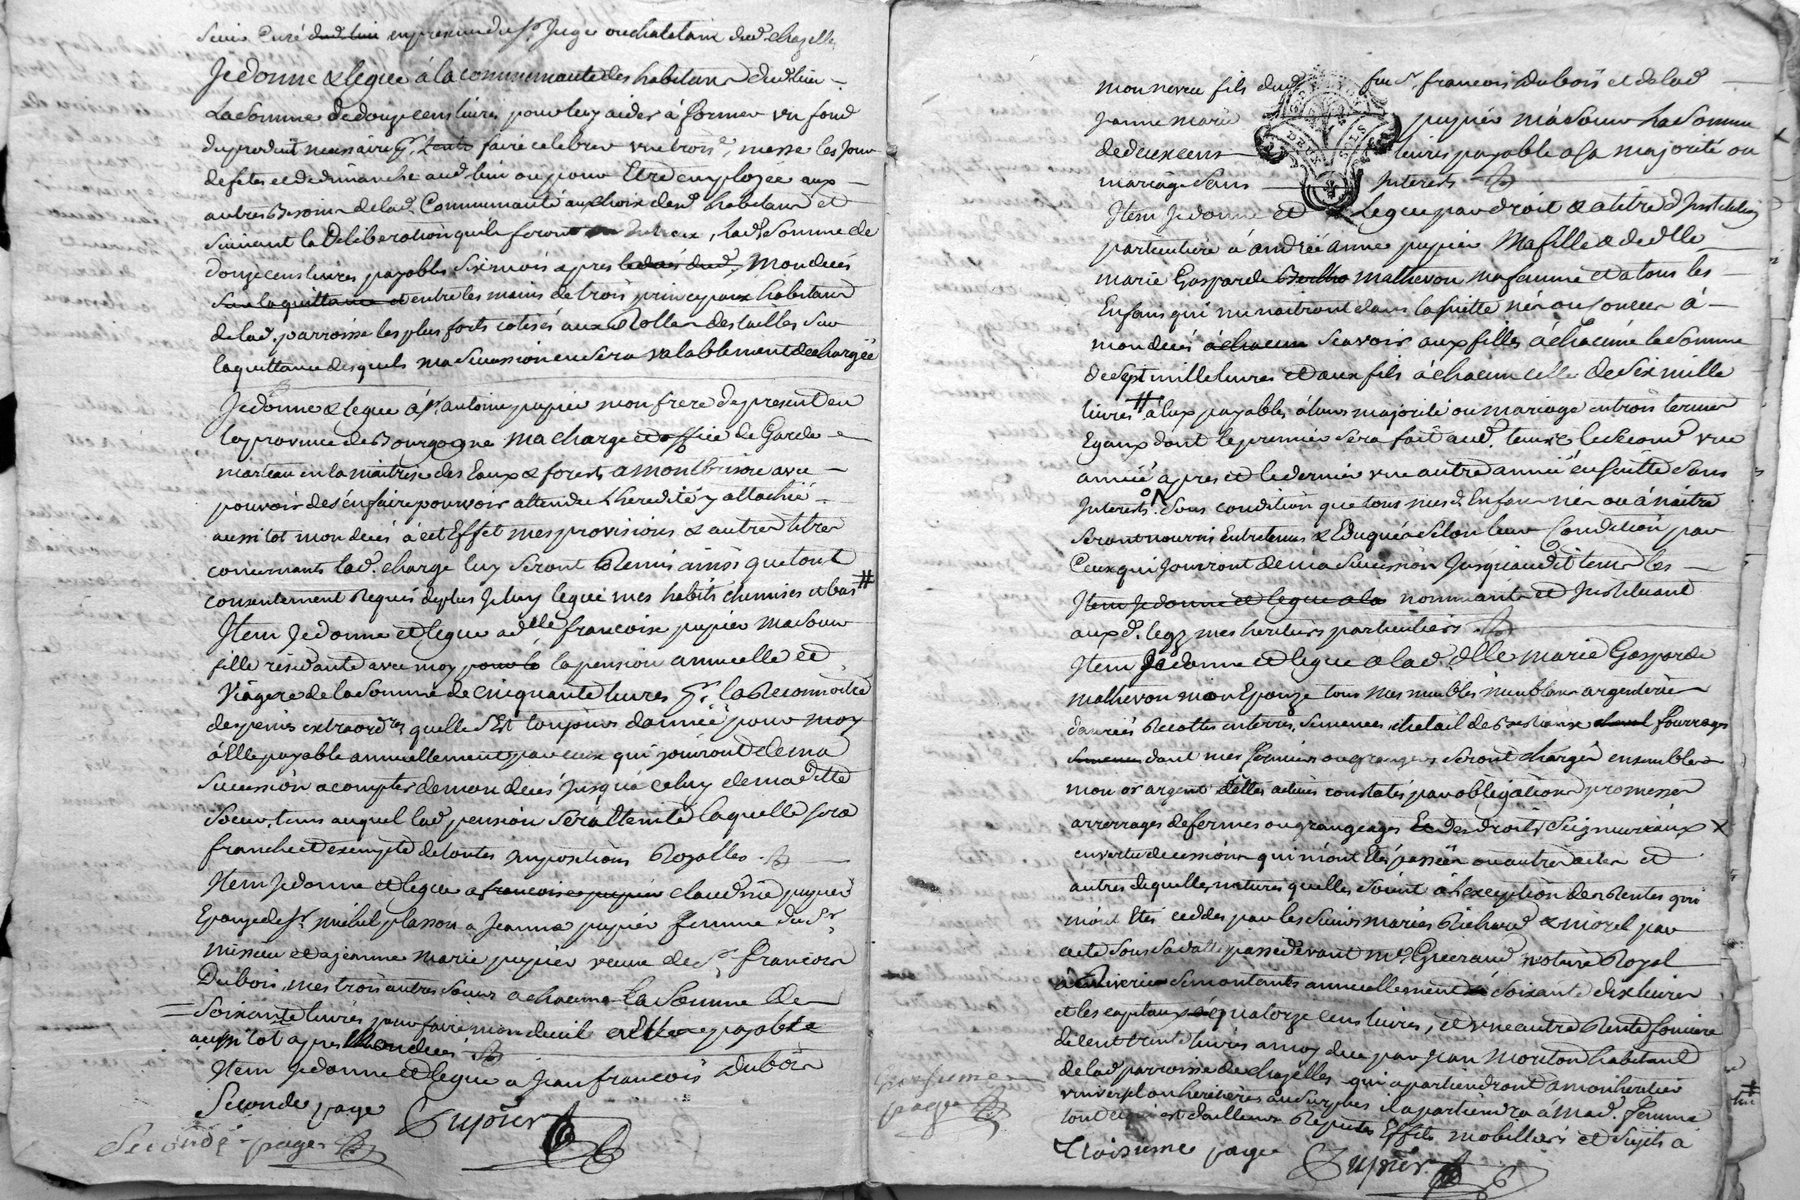 Sieur Curé dud. lieu en presence du Sr. Juge ou chatelain dud. chazelle
Je donne & legue à la communauté des habitans dud. lieu
La Somme de douze cens livres pour leur aider à former un fond
du produit necessaire pr. faire celebrer une trois.e messe les jours
de fetes et de dimanche aud. lieu ou pour Etre employée aux
autres Besoins de lad. Communauté au choix desd. habitans et
Suivant la Déliberation quils feront entreux, lad. Somme de
douze cens livres payables six mois apres le deces dud. Mon decés
Sur la quittance et entre les mains de trois principaux habitans
de lad. parroisse les plus forts cotisés aux Rolles des tailles sur
la quittance desquels ma Sucession en sera valablement dechargée
Je donne & legue à Sr. antoine pupier mon frere de present en
la province de Bourgogne ma charge et office de Garde
marteau en la maitrise des Eaux & forests a montbrison avec
pouvoir de s'en faire pourvoir attendu L'heredité y attachée
aussitot mon decés à cet Effet mes provisions & autres titres
concernants lad. charge luy seront Remis ainsi que tout
consentement Requis de plus Je luy legue mes habits chemises et bas #
Item Je donne et legue a dlle francoise pupier ma soeur
fille residante avec moy pour la pension annuelle et
Viagere de la Somme de cinquante livres pr. la Reconnoitre
des peines extraord.res quelle s'Est toujours donnée pour moy
à Elle payable annuellement par ceux qui jouiront de ma
Sucession a compter de mon decés jusqu'a celuy de maditte
Soeur, tems auquel lad. pension sera Eteinte laquelle sera
franche et exempte de toutes impositions Royalles
Item Je donne et legue a francoise pupier claudine pupier
Epouze de Sr. michel plasson a Jeanne pupier femme du Sr.
et a jeanne marie pupier veuve de Sr. francois
Dubois, mes trois autres soeurs a chacune la Somme de
Soixante livres pour faire mon deuil a Elle payable
aussitot apres Mon decés
Item Je donne et legue a Jean francois Dubois
Seconde page
Pupier
Seconde page
mon neveu fils dud. feu Sr. francois Dubois et de lad.
jeanne marie pupier ma soeur La Somme
de deux cens livres payable a sa majorité ou
mariage sans Interets
Item Je donne et Legue par droit & a titre d'Institution
particuliere à andrée anne pupier Ma fille & de dlle
marie Gasparde mathevon ma femme et a tous les
Enfans qui me naitront dans la suitte nés au jour de
mon decés à chacun Scavoir aux filles à chacune la Somme
de Sept mille livres et aux fils à chacun celle de Six mille
livres # à Eux payables à leurs majorité ou mariage en trois termes
Egaux dont le premier sera fait aud. tems & le second une
année après et le dernier une autre année ensuitte sans
Interets. Sous condition que tous mesd. Enfans nés ou à naitre
Seront nourris Entretenus & Eduqués selon leur Condition par
Ceux qui Jouiront de ma Sucession Jusqu'audit tems les
Item Je donne et legue a la nommant et Instituant
auxd. legs mes heritiers particuliers
Item Je donne et legue a lad. dlle marie Gasparde
mathevon mon Epouze tous mes meubles meublans argenterie
danrées Recoltes en terres, Semences, chetail de Bestiaux cheval fourrages
Semences dont mes fermiers ou grangers seront chargés ensemble
mon or argent dettes actives constatés par obligations promesses
arrerages de fermes ou grangeages Et des droits Seigneuriaux x
en vertu de cessions qui m'ont Etés passées ou autres actes et
autres de quelles natures quelles soient à l'exception des Rentes qui
m'ont Etés cedées par les Sieurs mariés Richard & morel par
acte sous sa datte passé devant me. Gueraud notaire Royal
à Riverie Se montants annuellement à soixante dix livres
et les capitaux à quatorze cens livres, et une autre Rente fonciere
de cent trente livres a moy due par jean mouton habitant
de lad. parroisse de chazelles qui apartiendront a mon heritier
universel ou heritieres au surplus il apartiendra à mad. femme
tout ce qui est d'ailleurs Reputé Effets mobilliers et Sujets à
Troisieme page
Pupier
Troisieme
page